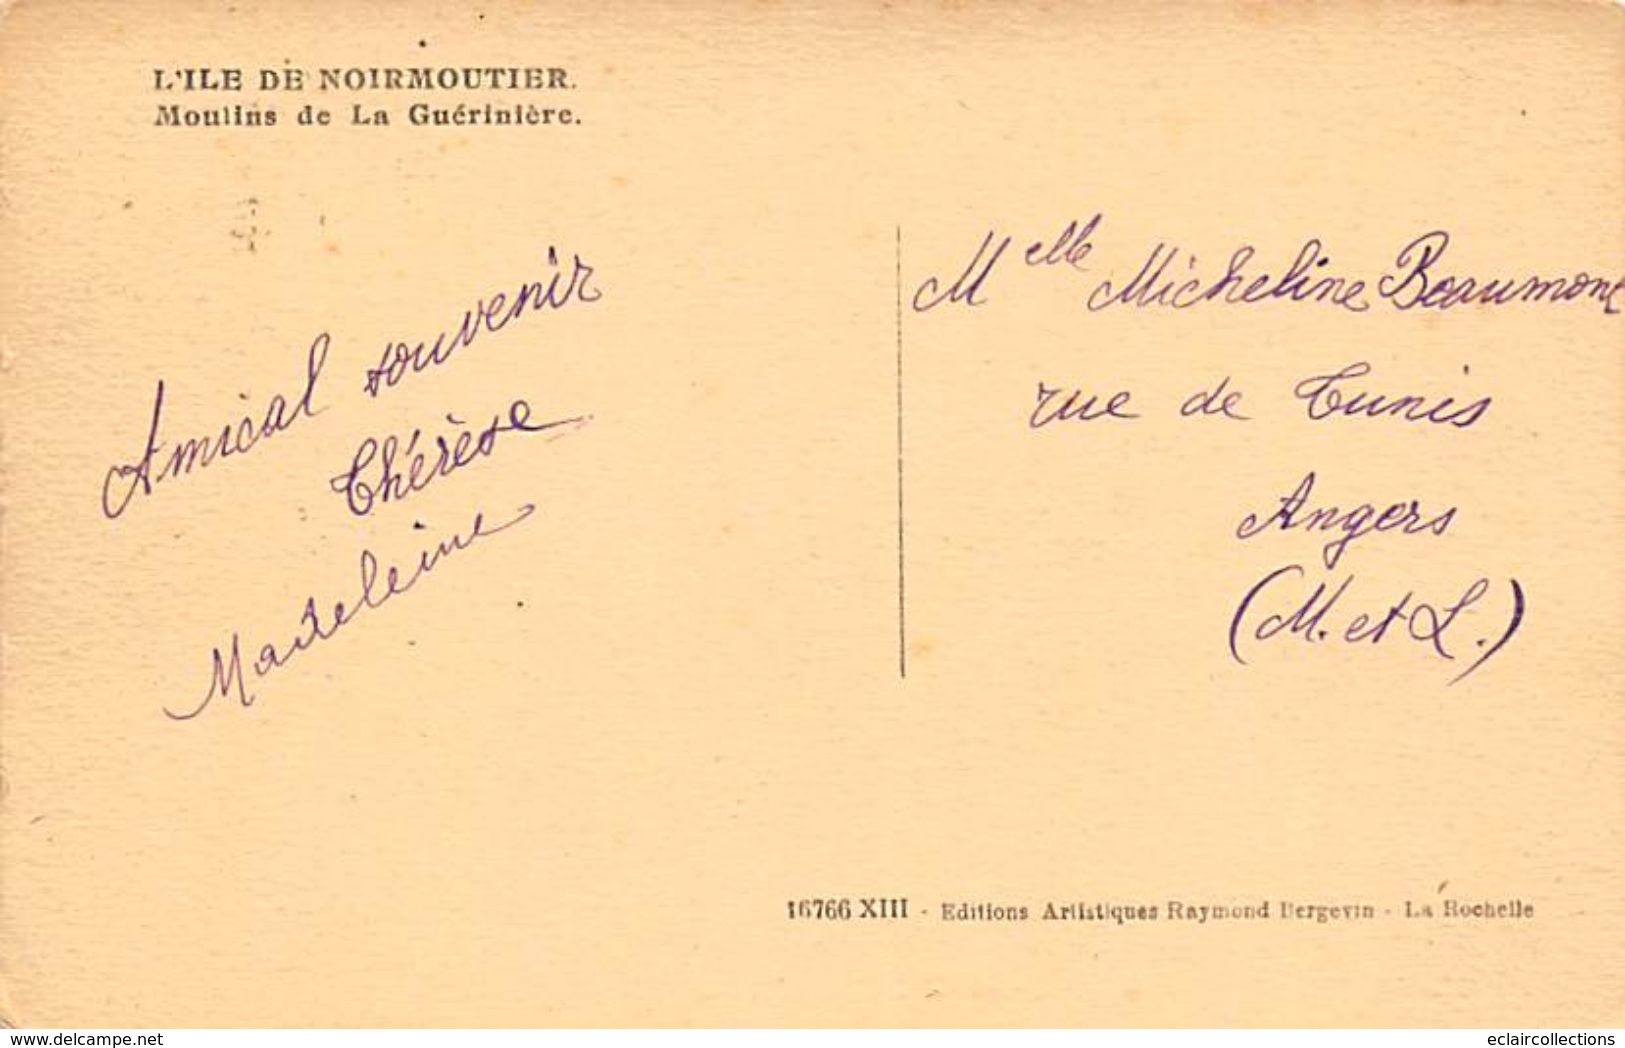 L'ILE DE NOIRMOUTIER.
Moulins de La Guérinière.
Amical souvenir
Thérèse
Madeleine
Melle Micheline Beaumont
rue de Tunis
Angers
(M. et L.)
16766 XIII - Editions Artistiques Raymond Bergevin - La Rochelle
www.delcampe.net
eclaircollections